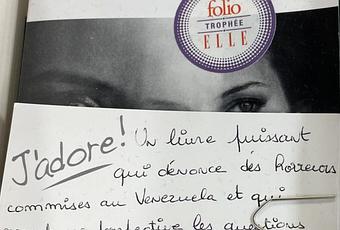 folio
TROPHÉE
ELLE
J'adore! Un livre puissant
qui dénonce des horreurs
commises au Venezuela et qui
les questions